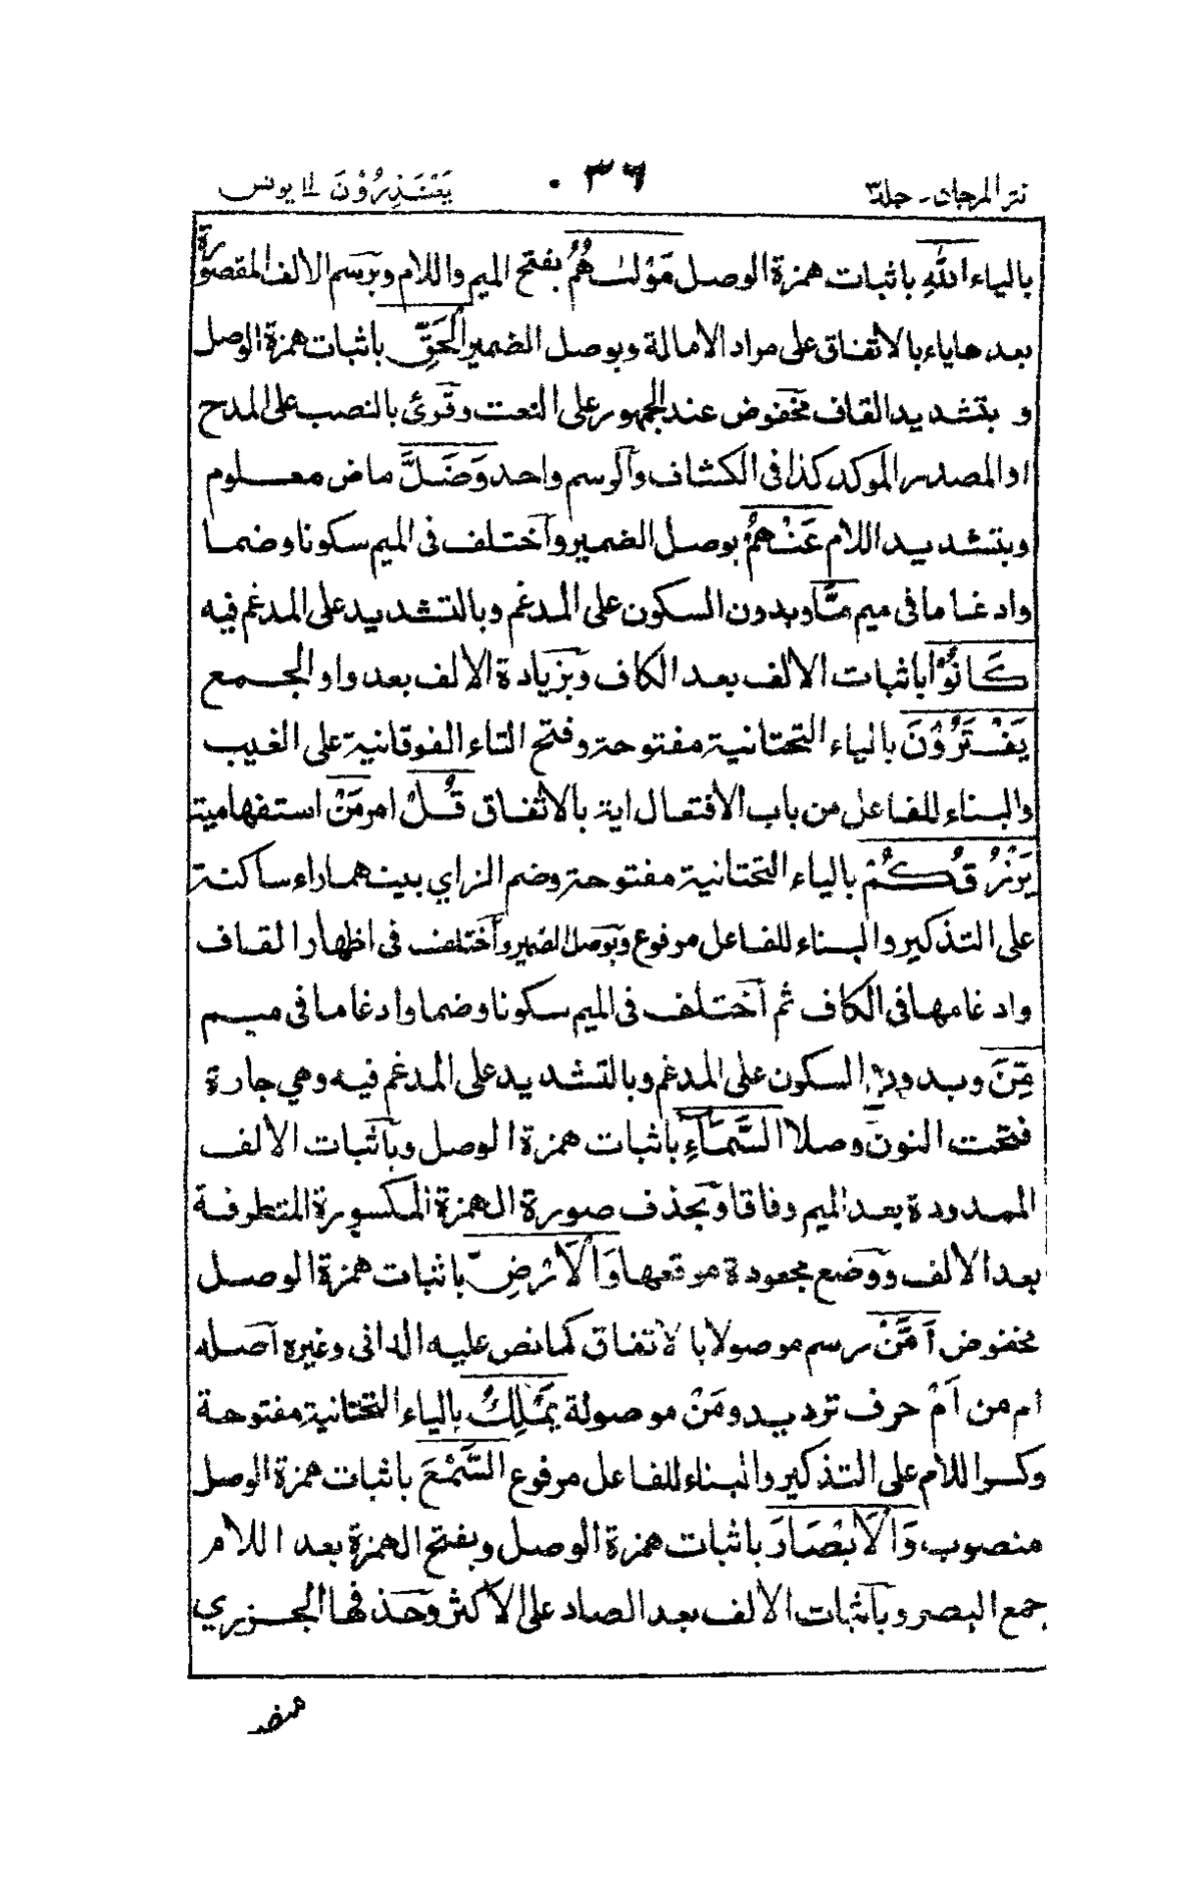 نثر المرجان - جلد ٣
٣٦٠
يَعْتَذِرُوْنَ ١١ يونس
بالياء اللهِ باثبات همزة الوصل مَوْلٰىهُمُ بفتح الميم واللام وبرسم الالف المقصورة
بعدها ياء بالاتفاق على مراد الامالة وبوصل الضمير الْحَقِّ باثبات همزة الوصل
و بتشديد القاف مخفوض عند الجمهور على النعت وقرئ بالنصب على المدح
او المصدر المؤكد كذا فى الكشاف والرسم واحد وَضَلَّ ماض معلوم
وبتشديد اللام عَنْهُمْ بوصل الضمير واختلف فى الميم سكونا وضما
وادغاما فى ميم مَّا وبدون السكون على المدغم وبالتشديد على المدغم فيه
كَانُوْا باثبات الالف بعد الكاف وبزيادة الالف بعد واو الجمع
يَفْتَرُوْنَ بالياء التحتانية مفتوحة وفتح التاء الفوقانية على الغيب
والبناء للفاعل من باب الافتعال اية بالاتفاق قُلْ امر مَنْ استفهامية
يَرْزُقُكُمْ بالياء التحتانية مفتوحة وضم الزاي بينهما راء ساكنة
على التذكير والبناء للفاعل مرفوع وبوصل الضمير واختلف فى اظهار القاف
وادغامها فى الكاف ثم اختلف فى الميم سكونا وضما وادغاما فى ميم
مِّنَ وبدون السكون على المدغم وبالتشديد على المدغم فيه وهي جارة
فتحت النون وصلا السَّمَآءِ باثبات همزة الوصل وباثبات الالف
الممدودة بعد الميم وفاقا وبحذف صورة الهمزة المكسورة المتطرفة
بعد الالف ووضع مجعودة موقعها وَالْاَرْضِ باثبات همزة الوصل
مخفوض اَمَّنْ رسم موصولا بالاتفاق كما نص عليه الدانى وغيره اصله
ام من اَمْ حرف ترديد ومَنْ موصولة يَمْلِكُ بالياء التحتانية مفتوحة
وكسر اللام على التذكير والبناء للفاعل مرفوع السَّمْعَ باثبات همزة الوصل
منصوب وَالْاَبْصَارَ باثبات همزة الوصل وبفتح الهمزة بعد اللام
جمع البصر وباثبات الالف بعد الصاد على الاكثر وحذفها الجزري